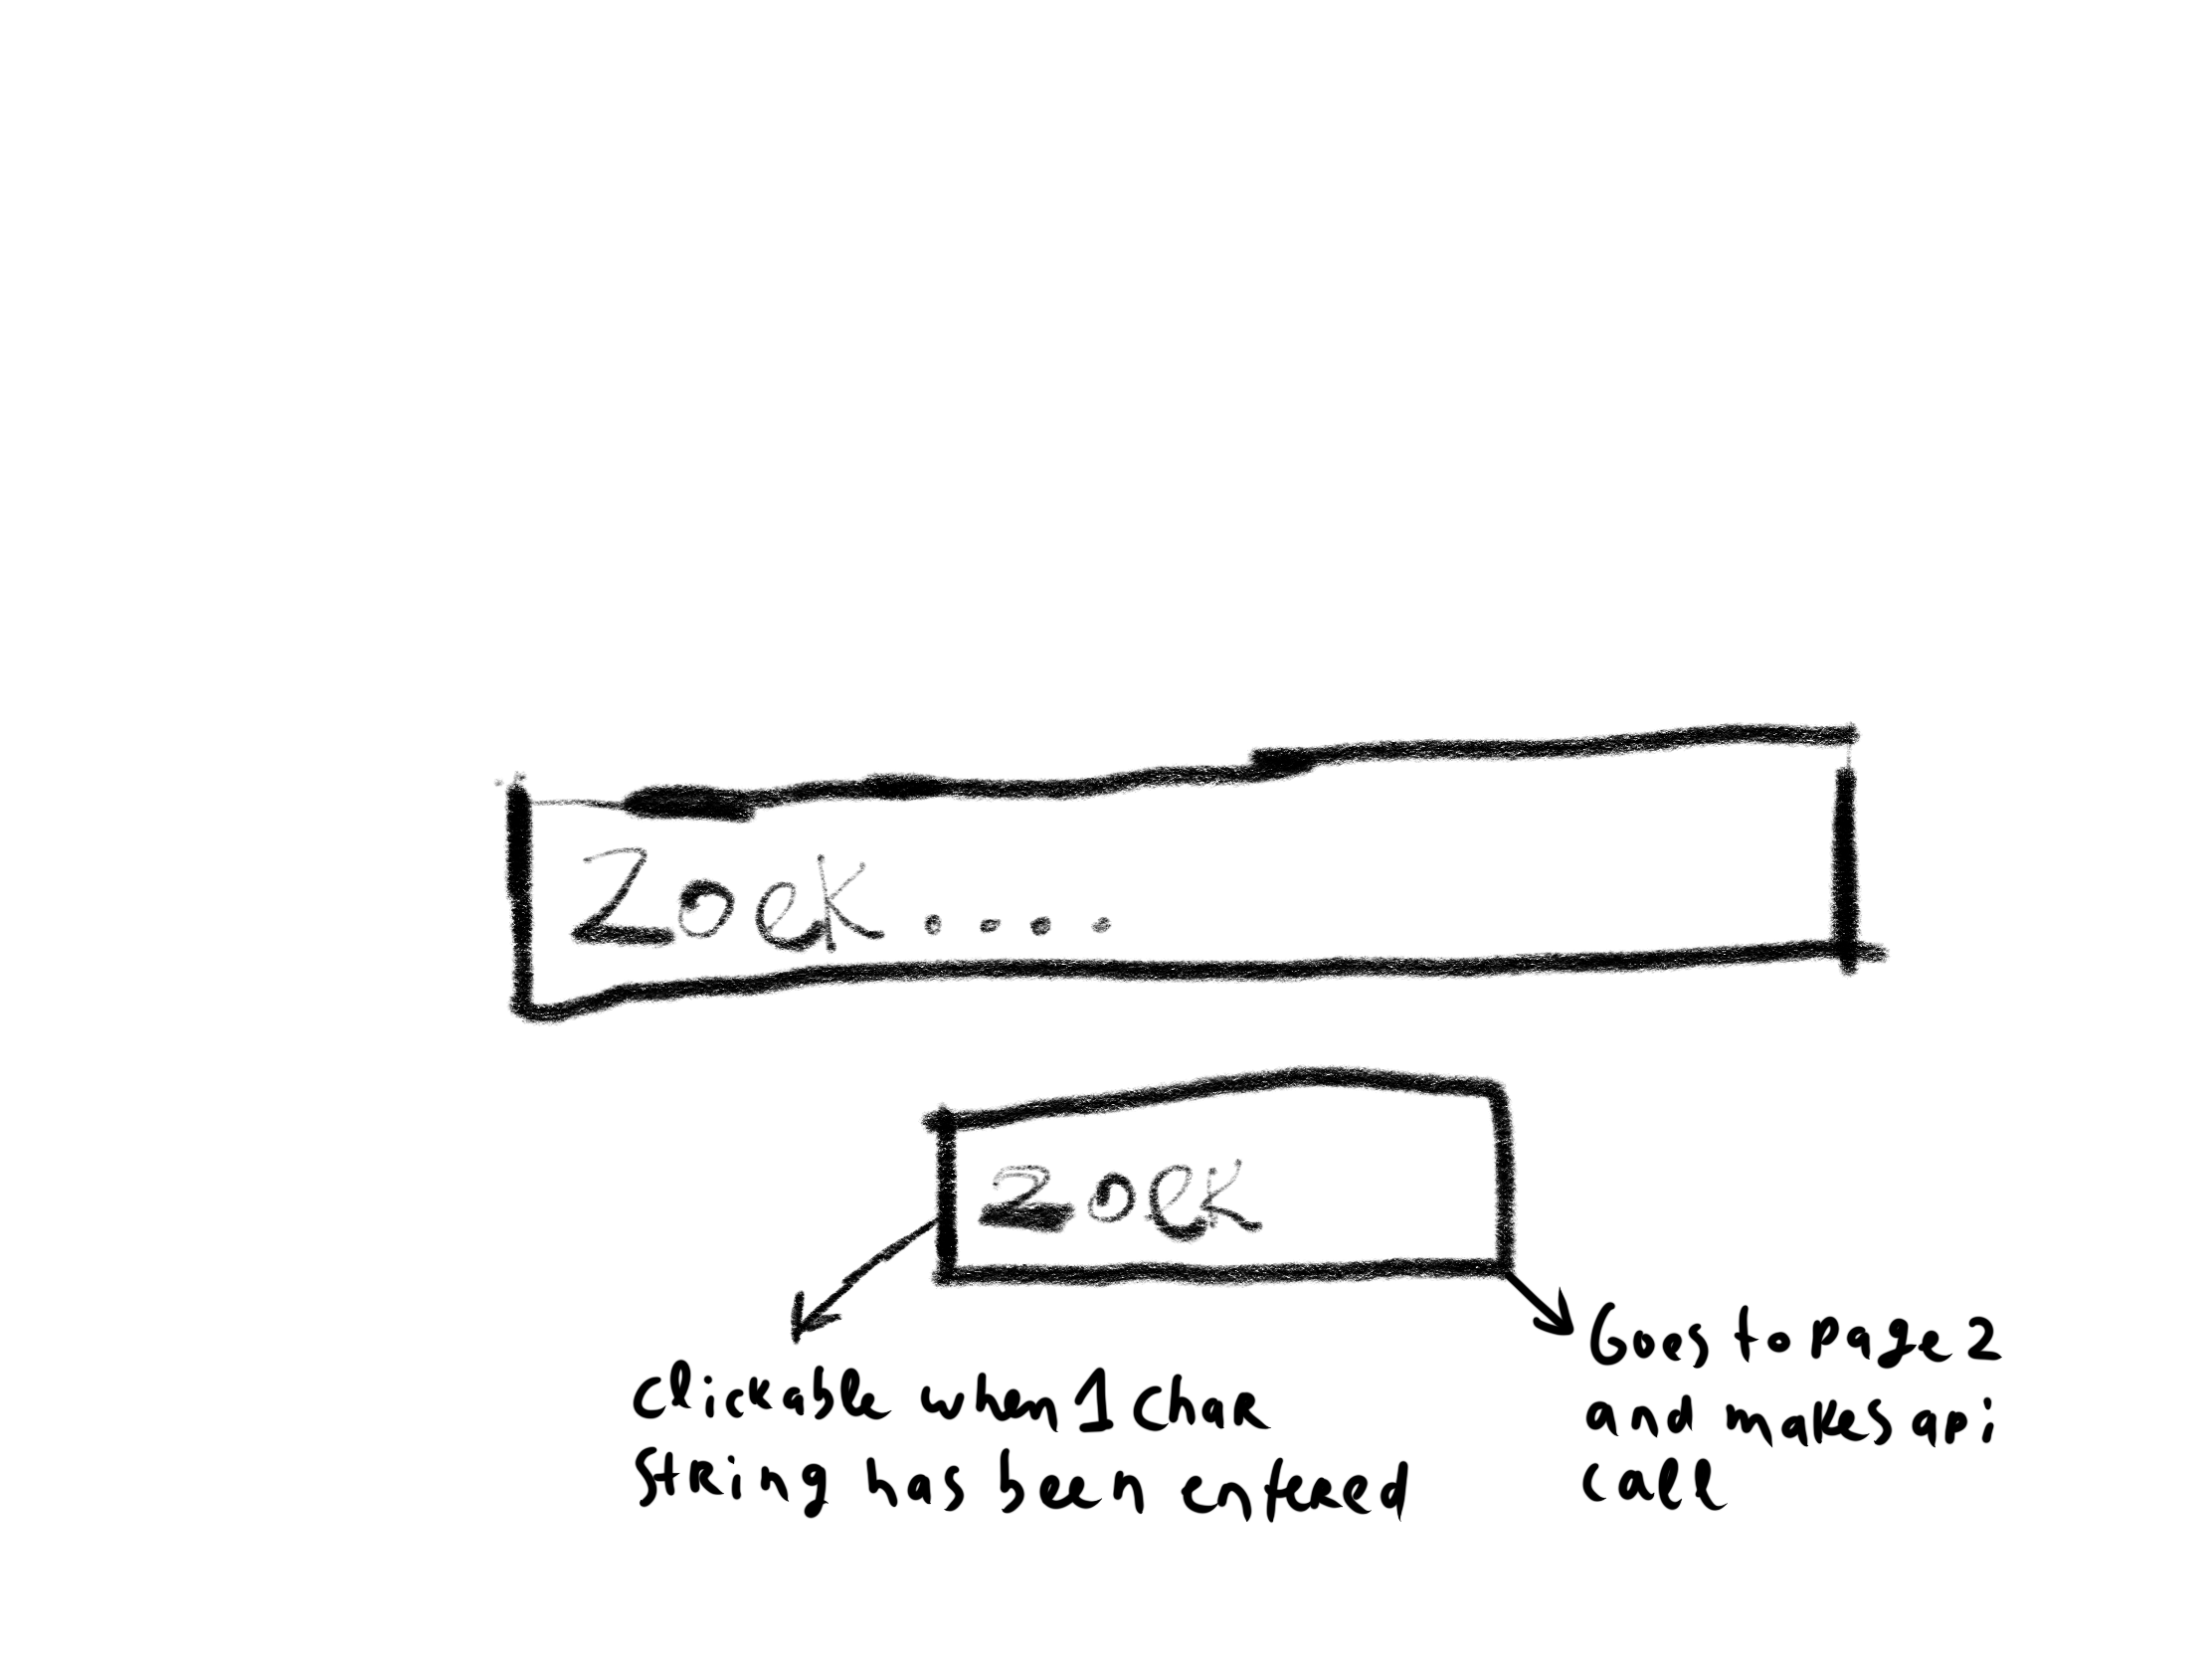 Zoek....
Zoek
Clickable when 1 char
string has been entered
Goes to page 2
and makes api
call